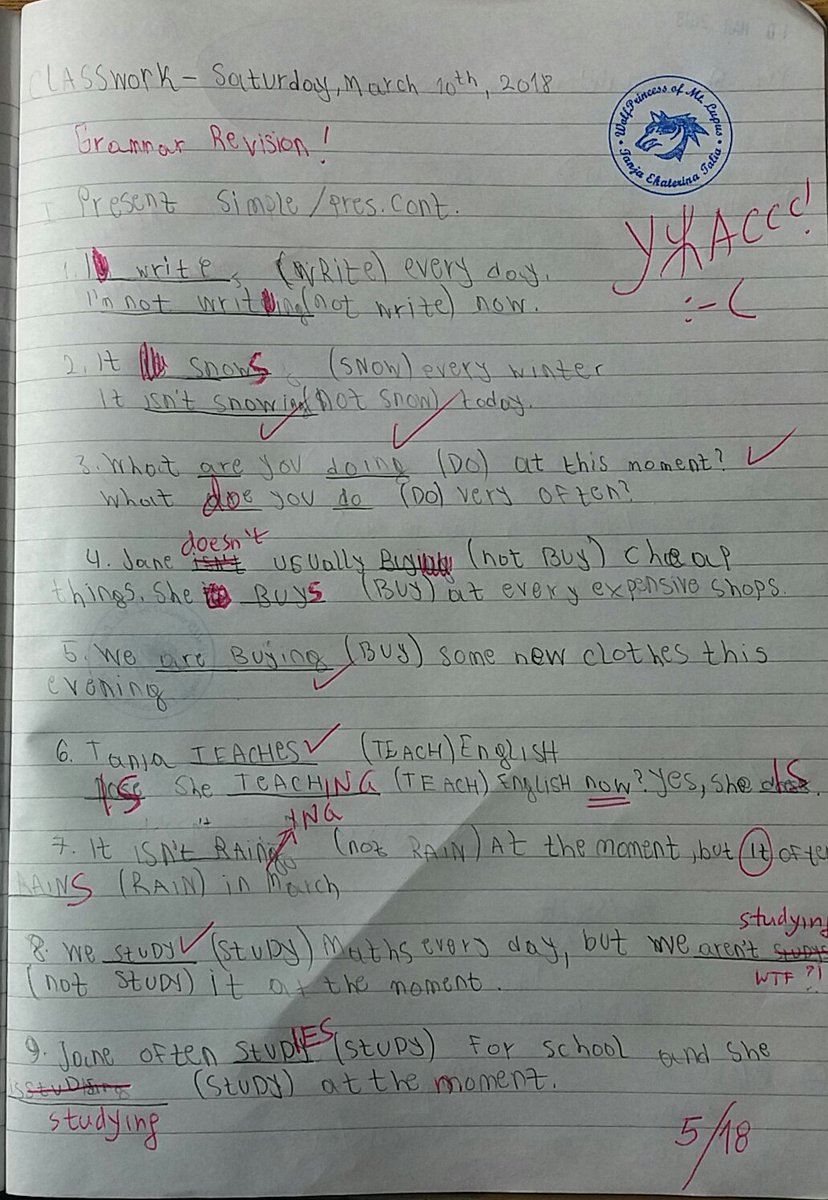 CLASSWORK - Saturday, March 10th, 2018
WolfPrincess of Mt. Lupus
Tanja Ekaterina Talia
Grammar Revision!
I Present Simple / pres. cont.
УЖАССС!
:-(
1. I write (WRITE) every day.
I'm not writing (not write) now.
2. It snows (SNOW) every winter
It isn't snowing (not snow) today.
3. What are you doing (DO) at this moment?
What do you do (DO) very often?
doesn't
4. Jane isn't usually (not BUY) cheap
things. She BUYS (BUY) at every expensive shops.
5. We are Buying (BUY) some new clothes this
evening
6. Tanja TEACHES (TEACH) English
IS She TEACHING (TEACH) English now? Yes, she IS.
ING
7. It isn't RAING (not RAIN) At the moment, but it often
RAINS (RAIN) in March
studying
8. We study (STUDY) Maths every day, but we aren't
WTF?!
(not STUDY) it at the moment.
9. Jane often STUDIES (STUDY) for school and she
is (STUDY) at the moment.
studying
5/18